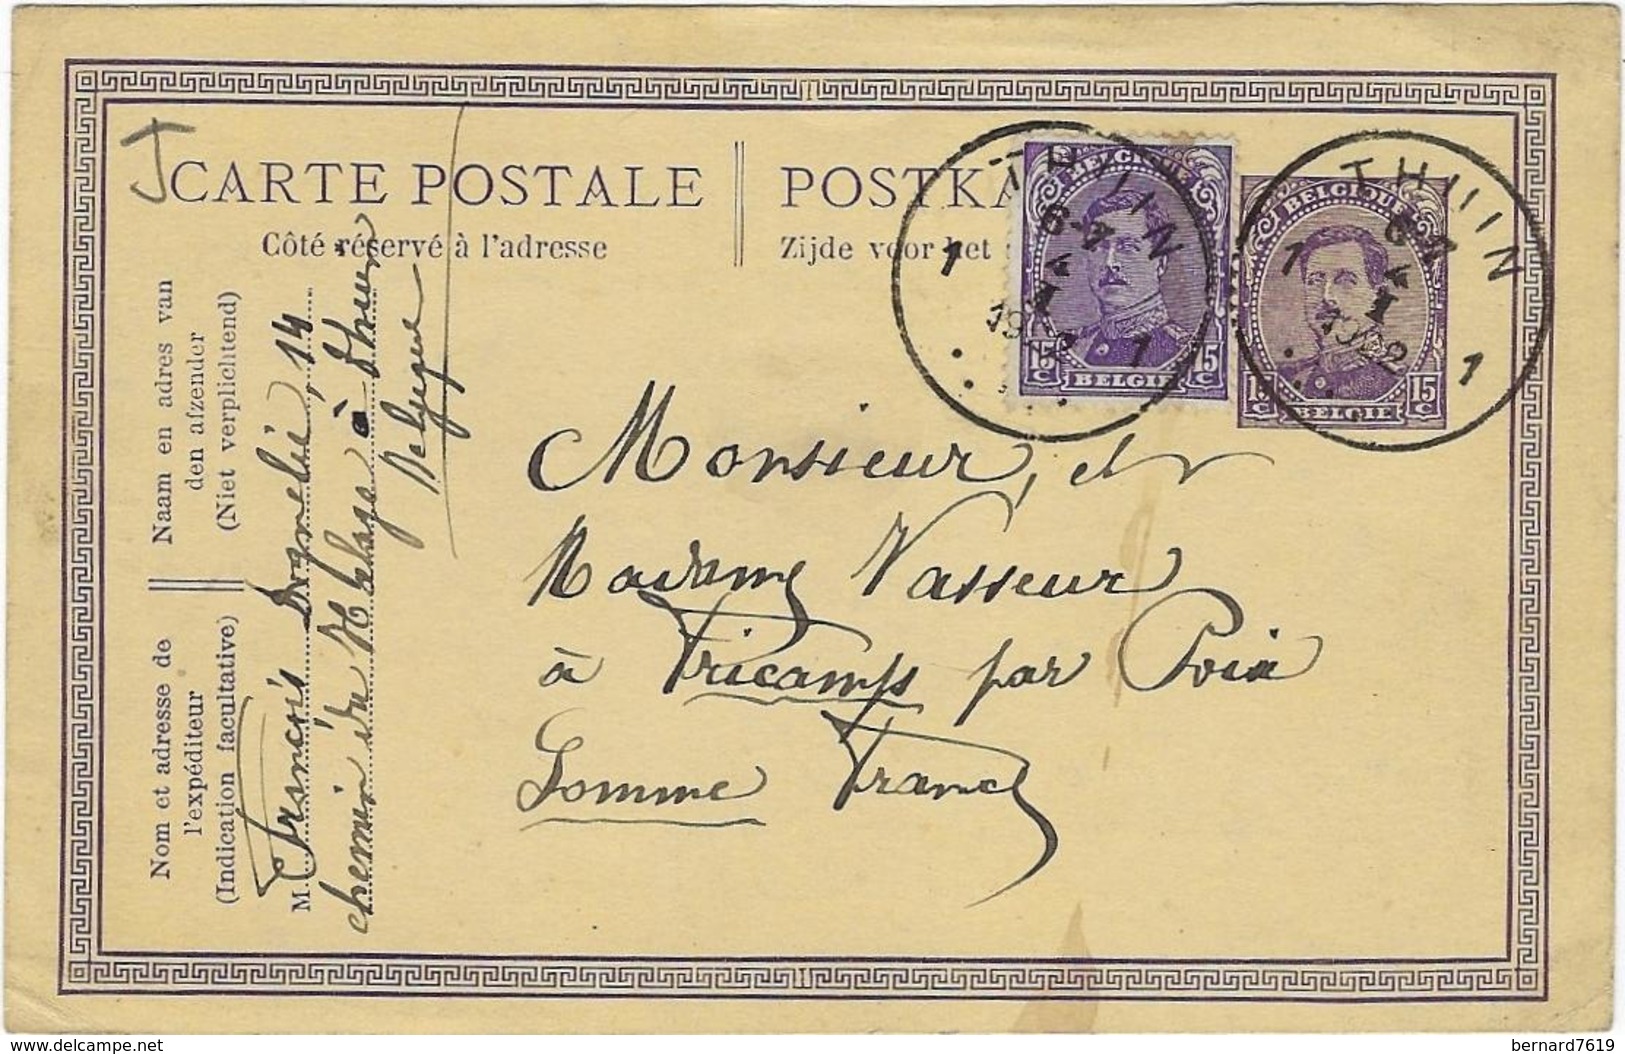 J
CARTE POSTALE
Côté réservé à l'adresse
POSTKA
Zijde voor het
BELGIQUE
15 C
BELGIE
15 C
THUIN
6-7
4
I
1922
1
1
BELGIQUE
15 C
BELGIE
15 C
THUIN
6-7
4
I
1922
1
1
Naam en adres van
den afzender
(Niet verplichtend)
Nom et adresse de
l'expéditeur
(Indication facultative)
M. François 14
chemin du à Thuin
Belgique
Monsieur, et
Madame Vasseur
à Fricamps par Poix
Somme France
www.delcampe.net
bernard7619